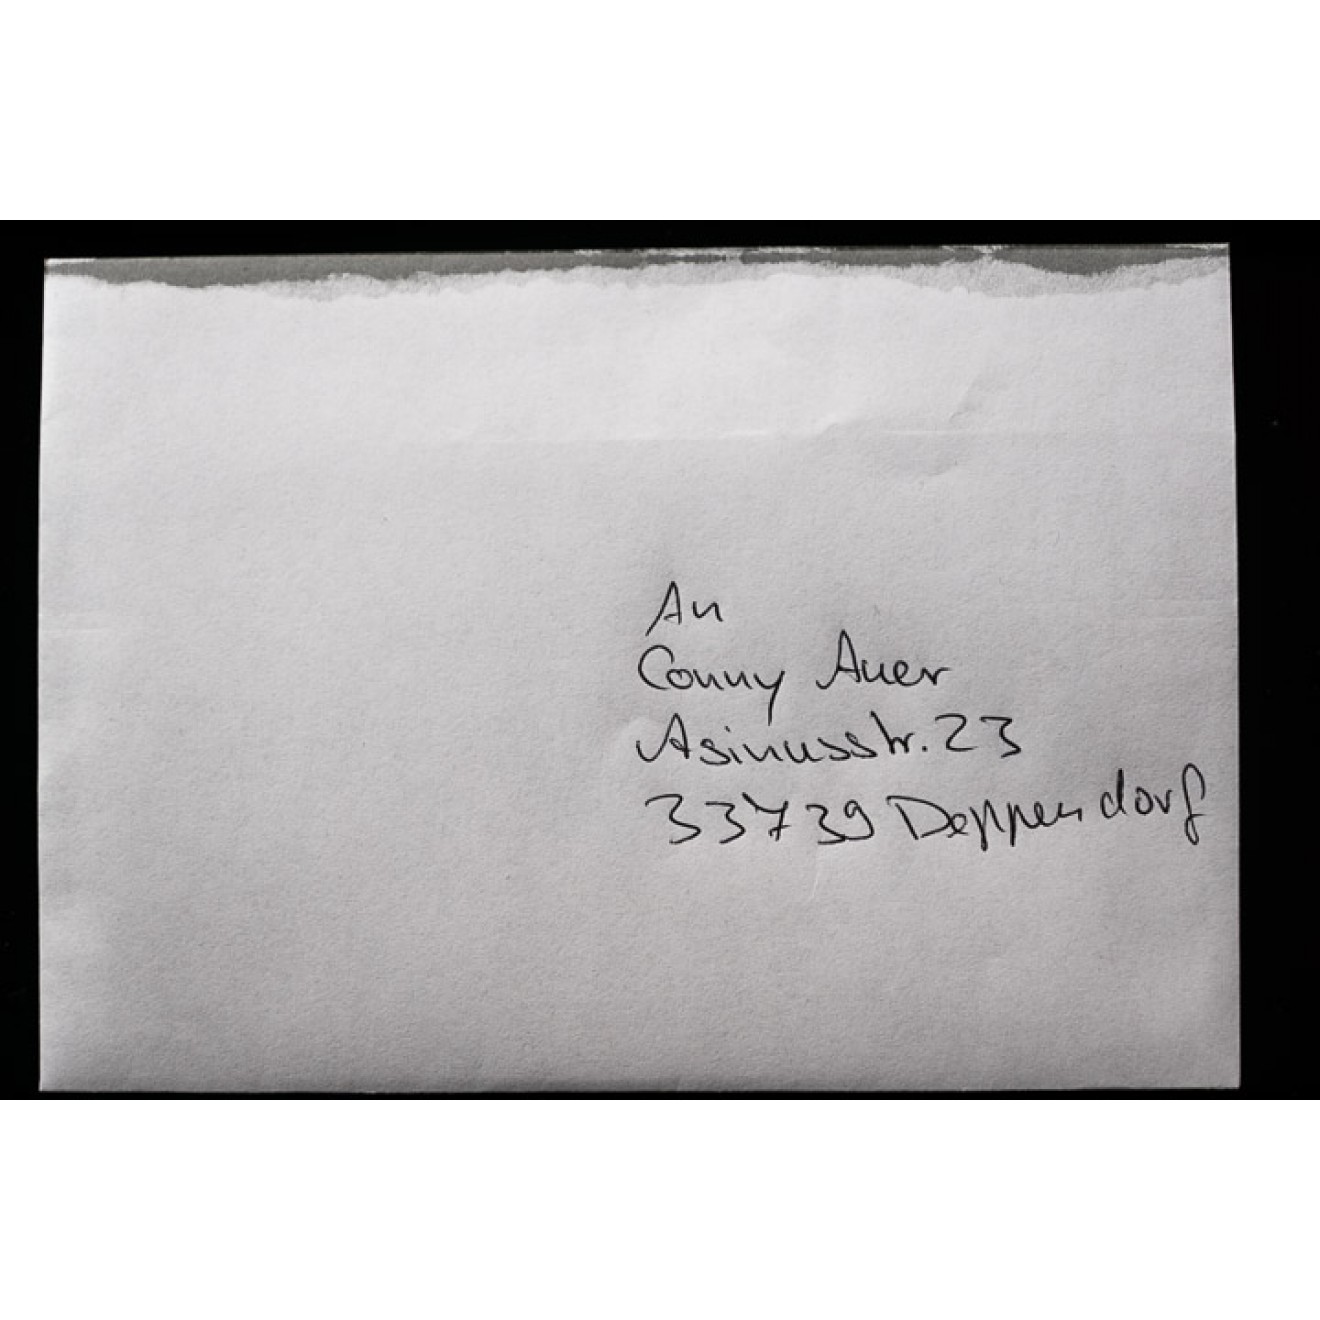 An
Conny Auer
Asinusstr. 23
33739 Deppendorf